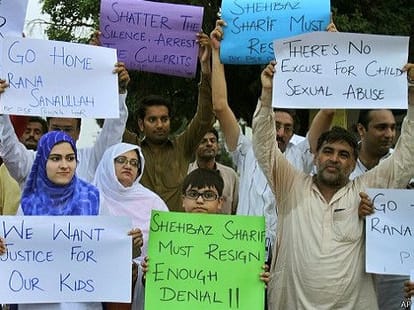 SHATTER THE
SILENCE, ARREST
THE CULPRITS
SHEHBAZ
SHARIF MUST
RESI
GO HOME
RANA
SANAULLAH
THERE'S NO
EXCUSE FOR CHILD
SEXUAL ABUSE
WE WANT
JUSTICE FOR
OUR KIDS
SHEHBAZ SHARIF
MUST RESIGN
ENOUGH
DENIAL !!
GO
RANA
P
AP